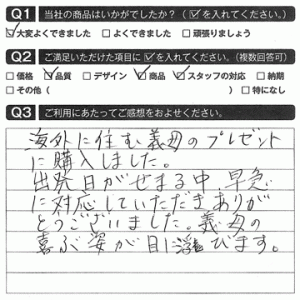 Q1 当社の商品はいかがでしたか？（☑を入れてください。）
☑大変よくできました □よくできました □頑張りましょう
Q2 ご満足いただけた項目に☑を入れてください。（複数回答可）
□価格 ☑品質 □デザイン ☑商品 ☑スタッフの対応 □納期
□その他（　　　　　） □特になし
Q3 ご利用にあたってご感想をおよせください。
海外に住む義母のプレゼント
に購入しました。
出発日がせまる中、早急
に対応していただきありが
とうございました。義母の
喜ぶ姿が目に浮びます。